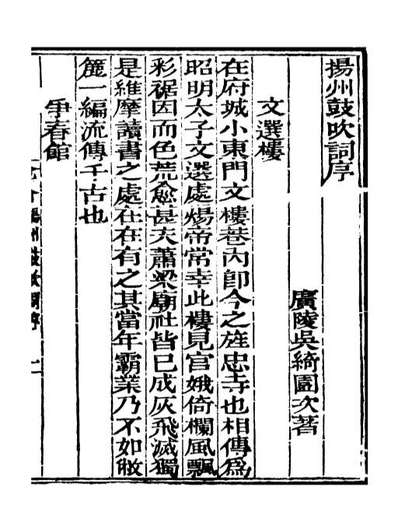 揚州鼓吹詞序
廣陵吳綺園次著
文選樓
在府城小東門文樓巷內卽今之㫌忠寺也相傳爲
昭明太子文選處煬帝常幸此樓見宮娥倚欄風飄
彩裾因而色荒愈甚夫蕭梁廟社皆已成灰飛滅獨
是維摩讀書之處在在有之其當年霸業乃不如敝
簏一編流傳千古也
爭春館